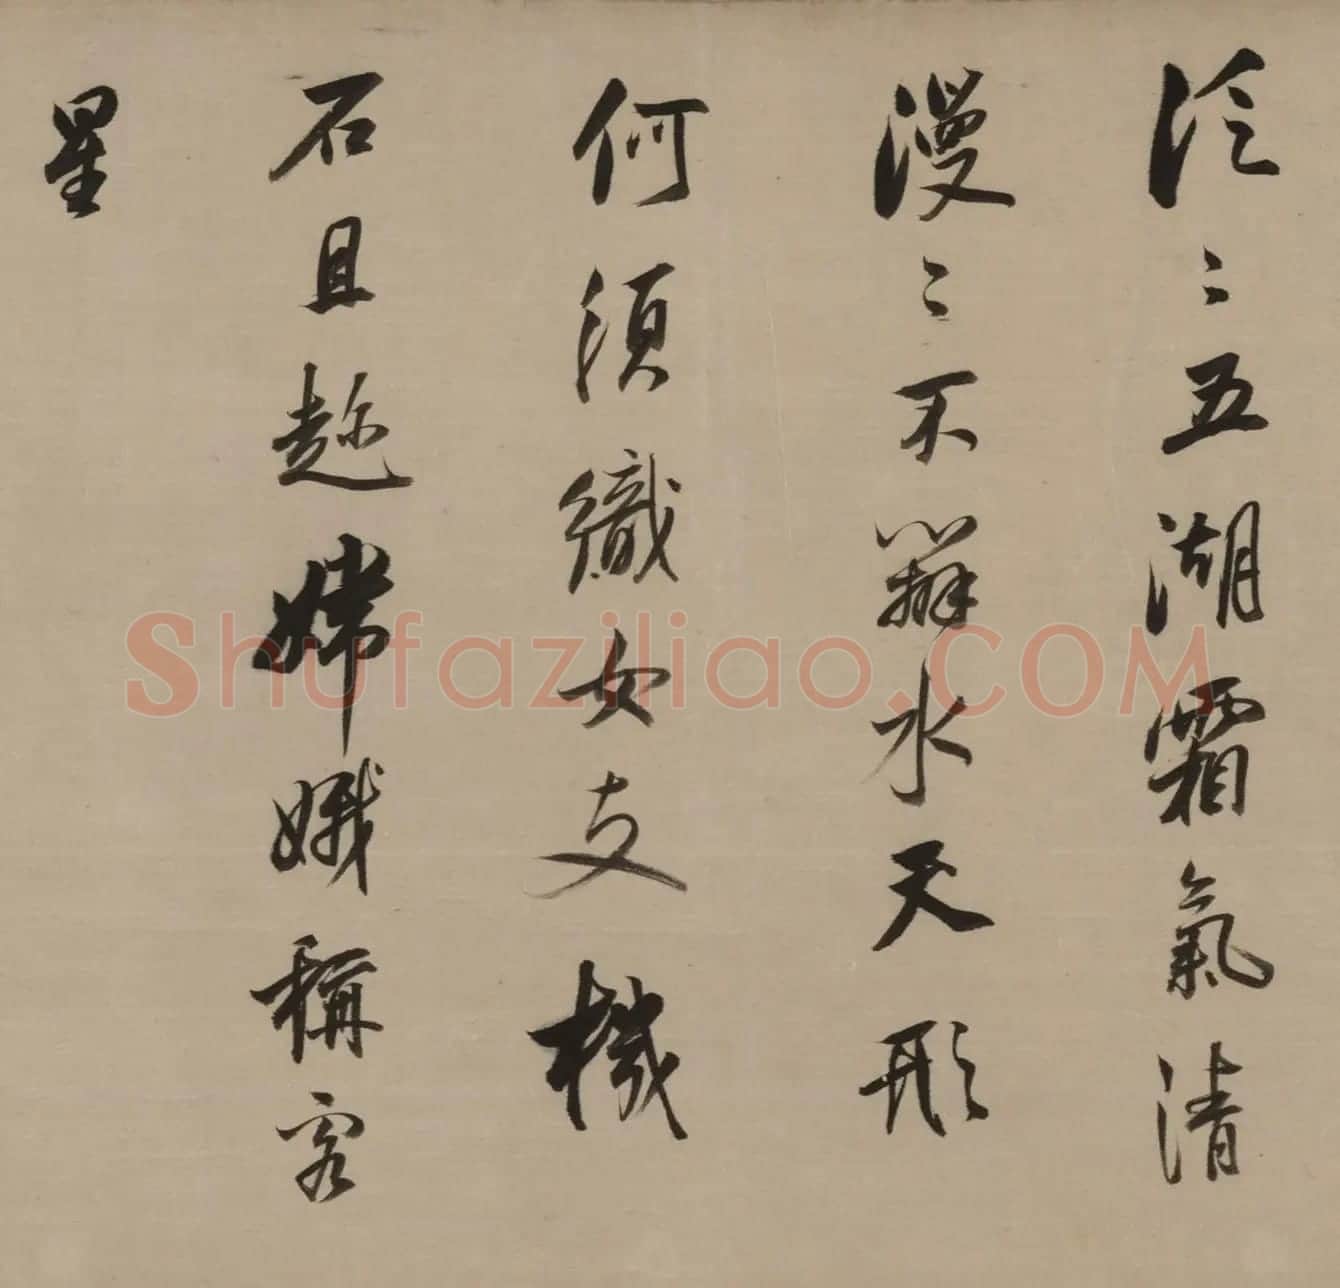 泛〻五湖霜氣清
漫〻不辨水天形
何須織女支機
石且趁嫦娥稱客
星
Shufaziliao.COM